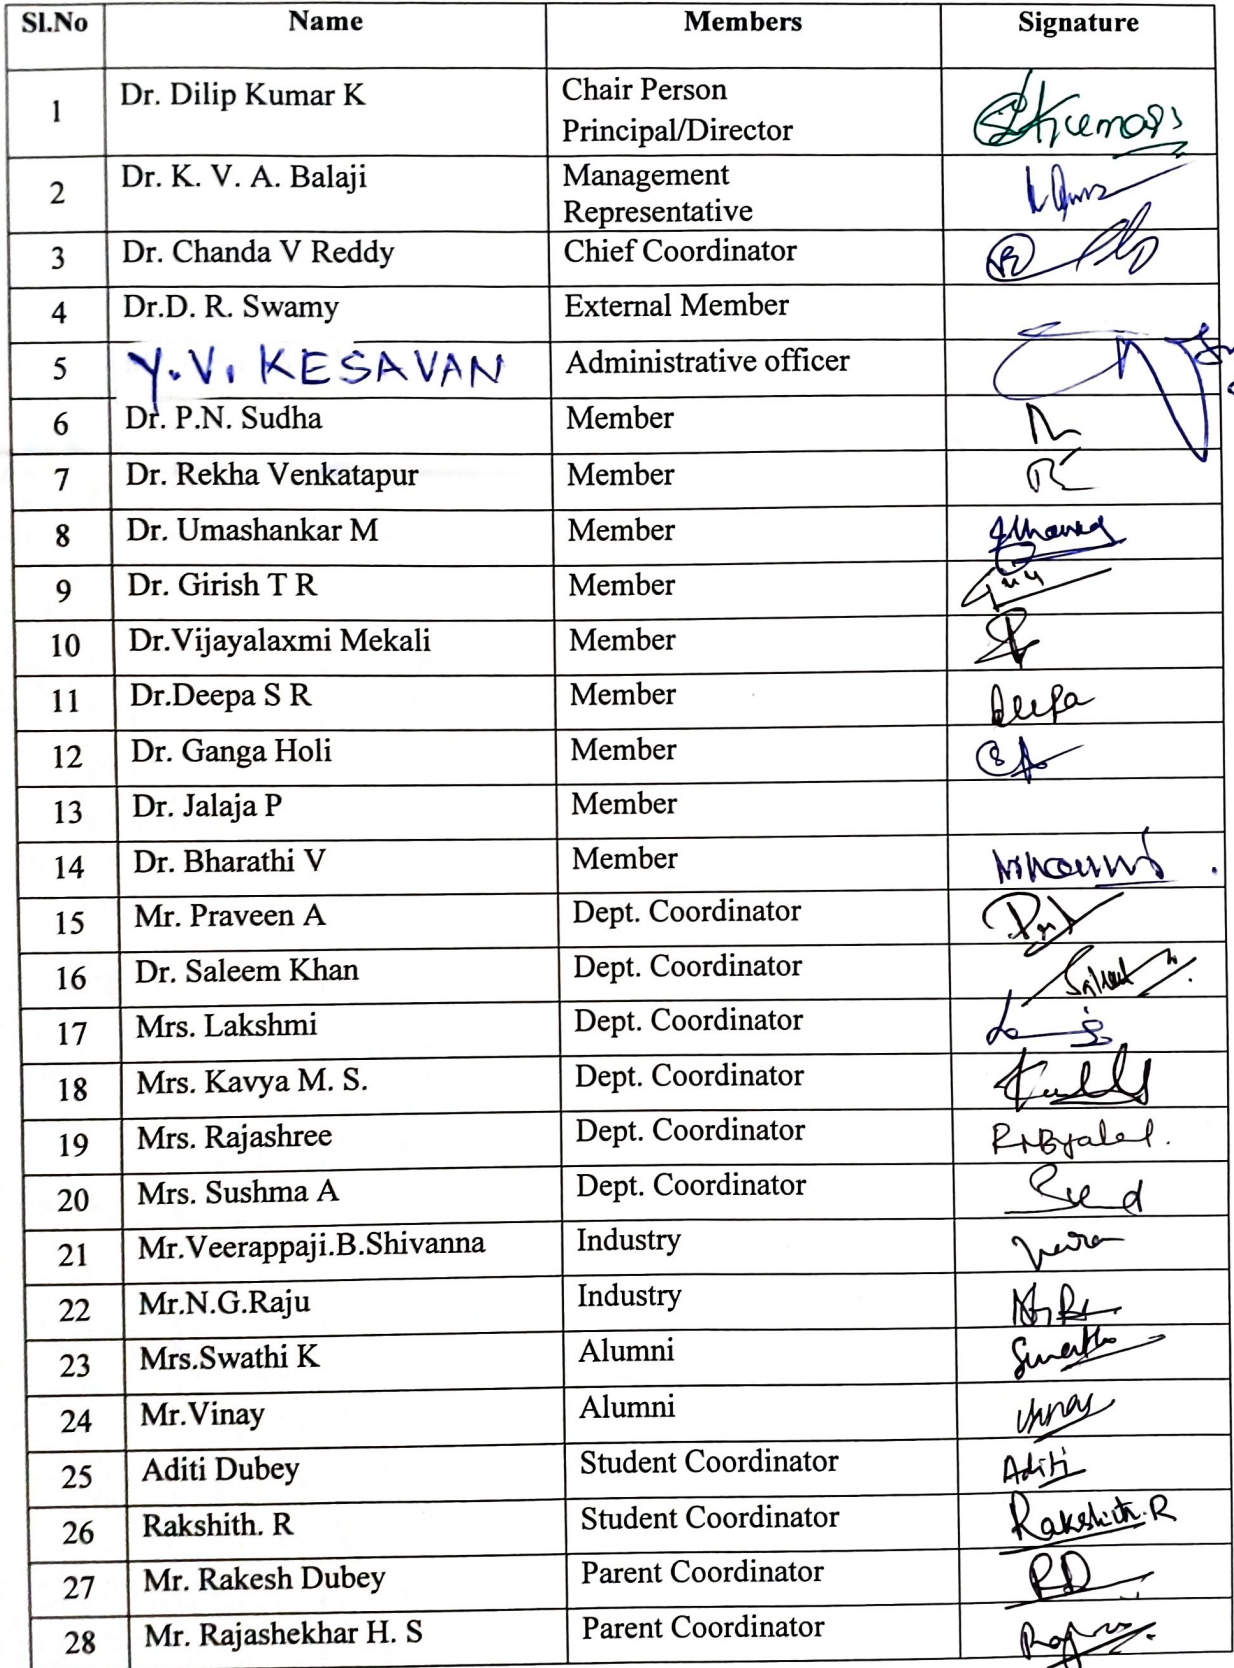 Sl.No Name Members Signature
1 Dr. Dilip Kumar K Chair Person
Principal/Director
2 Dr. K. V. A. Balaji Management
Representative
3 Dr. Chanda V Reddy Chief Coordinator
4 Dr.D. R. Swamy External Member
5 Y.V. KESAVAN Administrative officer
6 Dr. P.N. Sudha Member
7 Dr. Rekha Venkatapur Member
8 Dr. Umashankar M Member
9 Dr. Girish T R Member
10 Dr.Vijayalaxmi Mekali Member
11 Dr.Deepa S R Member Deepa
12 Dr. Ganga Holi Member
13 Dr. Jalaja P Member
14 Dr. Bharathi V Member
15 Mr. Praveen A Dept. Coordinator
16 Dr. Saleem Khan Dept. Coordinator
17 Mrs. Lakshmi Dept. Coordinator
18 Mrs. Kavya M. S. Dept. Coordinator
19 Mrs. Rajashree Dept. Coordinator
20 Mrs. Sushma A Dept. Coordinator
21 Mr.Veerappaji.B.Shivanna Industry
22 Mr.N.G.Raju Industry
23 Mrs.Swathi K Alumni
24 Mr.Vinay Alumni
25 Aditi Dubey Student Coordinator Aditi
26 Rakshith. R Student Coordinator Rakshith.R
27 Mr. Rakesh Dubey Parent Coordinator
28 Mr. Rajashekhar H. S Parent Coordinator